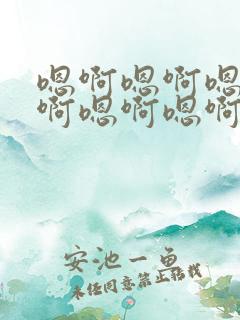 嗯啊嗯啊嗯
啊嗯啊嗯啊
安池一鱼
未经同意禁止转载